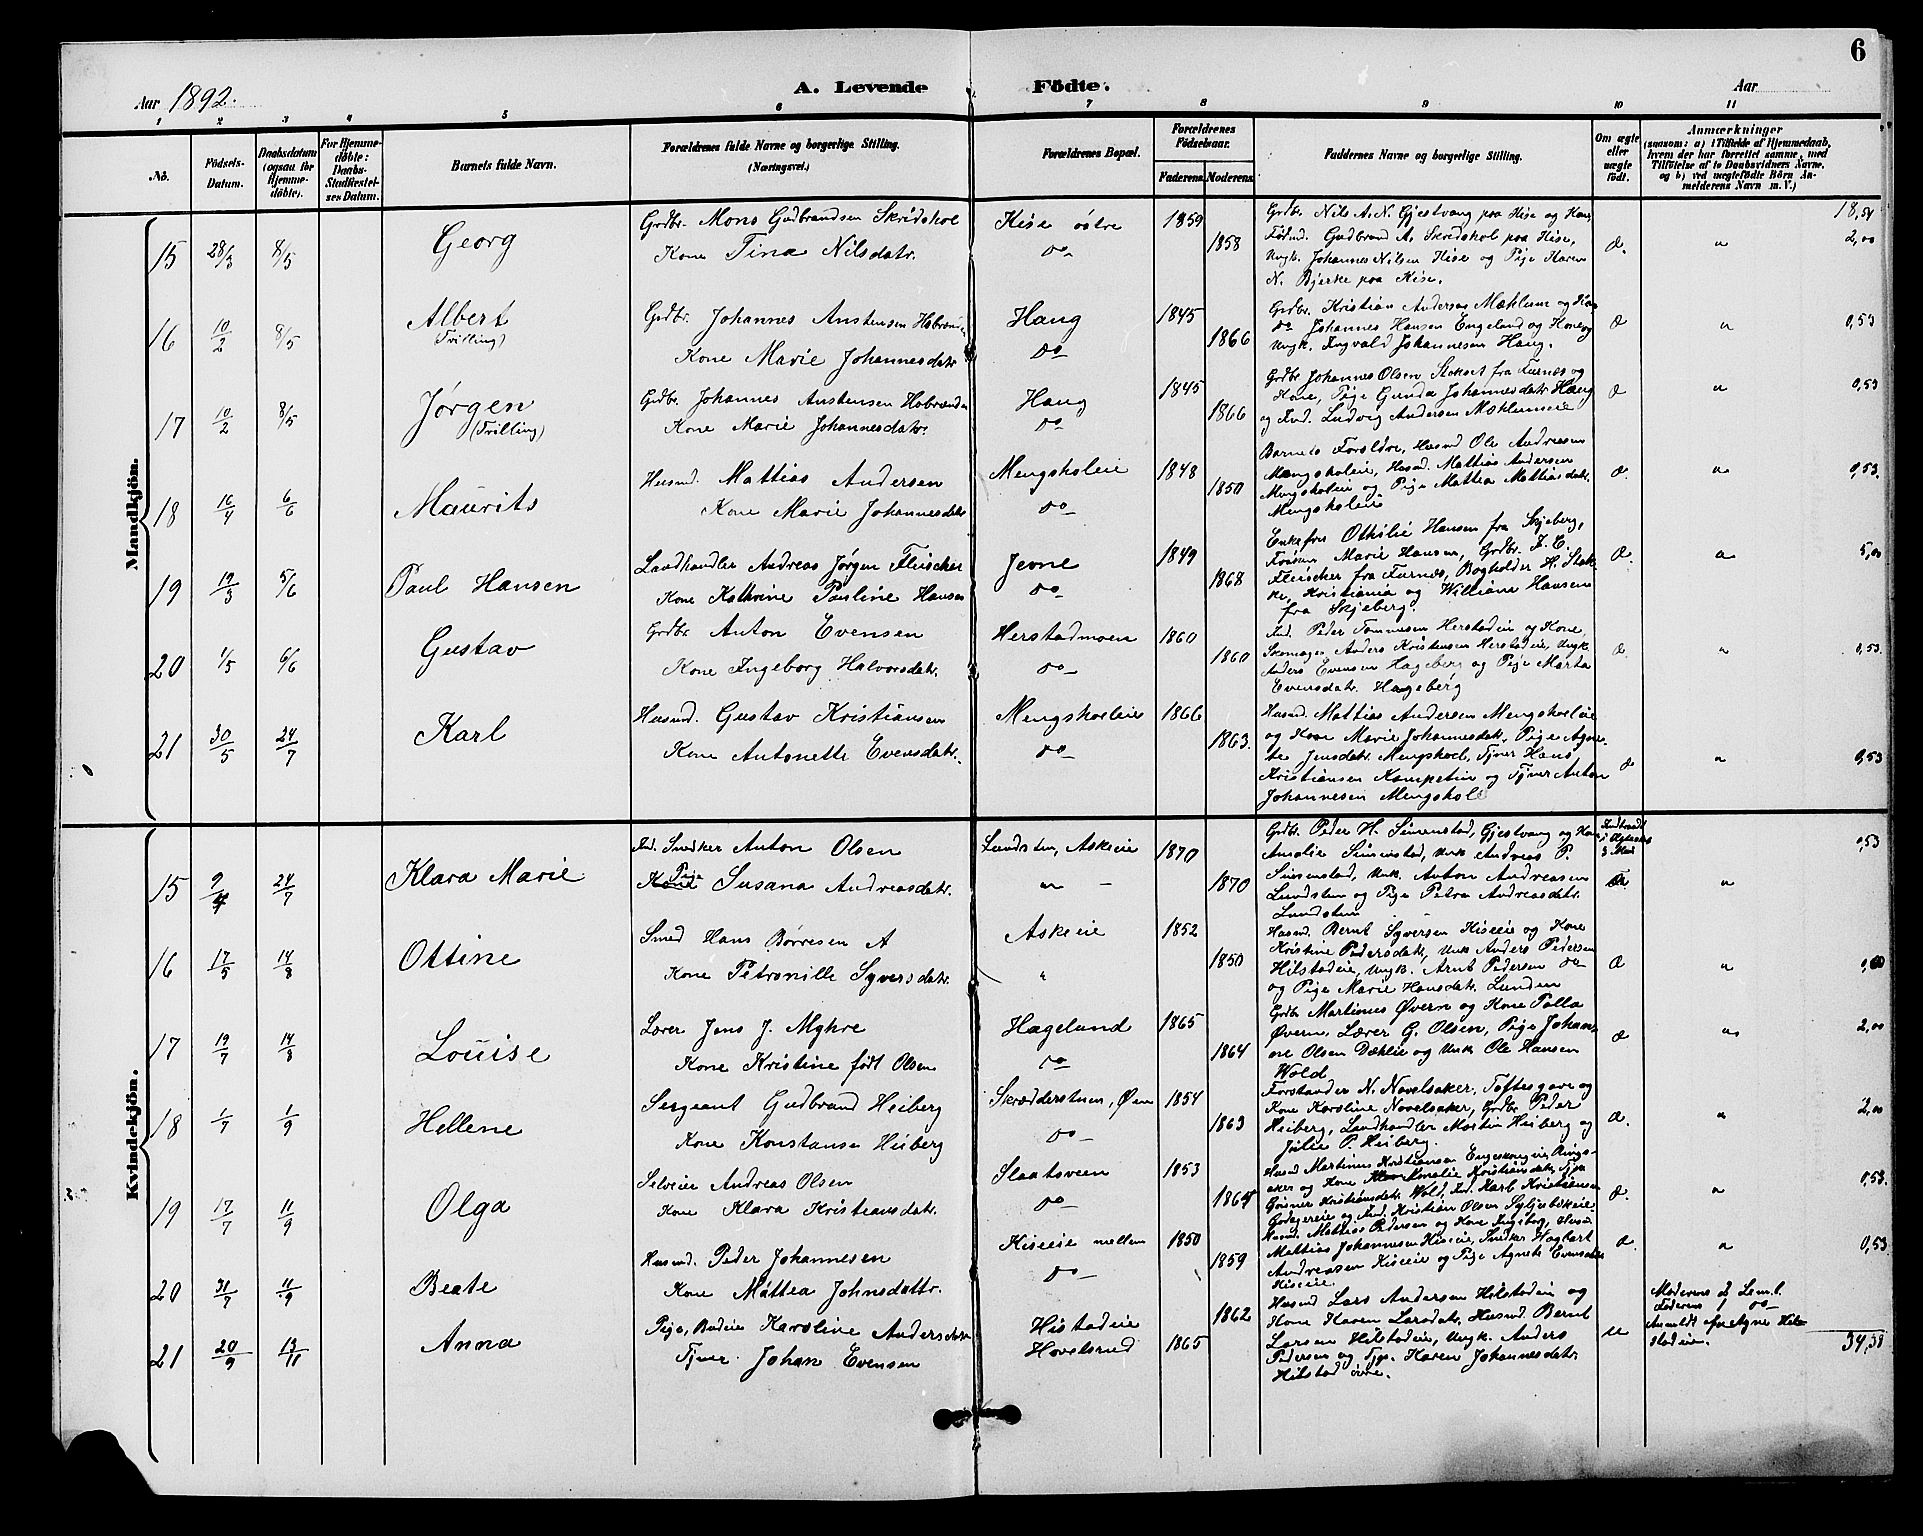 6
Aar 1892.
A. Levende Födte.
Aar
1 2 3 4 5 6 7 8 9 10 11
No.
Födsels-Datum.
Daabsdatum (ogsaa for Hjemmedöbte).
For Hjemmedöbte: Daabs-Stadfæstelses Datum.
Barnets fulde Navn.
Forældrenes fulde Navne og borgerlige Stilling. (Næringsvei.)
Forældrenes Bopæl.
Forældrenes Födselsaar.
Faderens. Moderens.
Faddernes Navne og borgerlige Stilling.
Om ægte eller uægte födt.
Anmærkninger
(saasom: a) i Tilfælde af Hjemmedaab,
hvem der har forrettet samme, med
Tilföielse af to Daabsvidners Navne,
og b) ved uegtefödte Börn Anmelderens Navn m. V.)
Mandkjön.
18,54
15 28/3 8/5 Georg
Grdbr. Mons Gudbrandsen Skridshol
Kone Tina Nilsdatr.
Kise östre
do
1859 1858
Grdbr. Nils A. N. Gjestvang paa Kise og Kone,
Föds. Gudbrand A. Skridshol paa Kise,
Ungk. Johannes Nilsen Kise og Pige Karen
N. Bjerke paa Kise.
æ. " 2,00
16 10/2 8/5 Albert
(Tvilling)
Grdbr. Johannes Anstensen
Kone Marie Johannesdatr
Haug
do
1845 1866
Grdbr. Kristian Andersen Mæhlum og Kone
do Johannes Hansen Engelund og Kone og
Ungk. Ingvald Johannesen Haug.
æ " 0,53
17 10/2 8/5 Jørgen
(Tvilling)
Grdbr. Johannes Anstensen
Kone Marie Johannesdatr.
Haug
do
1845 1866
Grdbr Johannes Olsen Stokset fra Furnæs og
Kone, Pige Gunda Johannesdatr Haug
og Ind. Ludvig Andersen Mæhlumeie
æ " 0,53
18 16/4 6/6 Maurits
Husmd. Mattias Andersen
Kone Marie Johannesdatr
Mengsholeie
do
1848 1850
Barnets Foreldre, Husmd Ole Andreasen
Mengsholeie, Husmd. Mattias Andersen
Mengsholeie og Pige Mattea Mattiasdatr.
Mengsholeie
æ. " 0,53.
19 19/3 5/6 Paul Hansen
Landhandler Andreas Jørgen Fleischer
Kone Kathrine Pauline Hansen
Jevne
do
1849 1868
Enkefru Othilie Hansen fra Skjeberg,
Frøken Marie Hansen, Grdbr. F. C.
Fleischer fra Furnæs, Bogholder H.
Kristiania og William Hansen
fra Skjeberg.
æ. " 5,00
20 1/5 6/6 Gustav
Grdbr Anton Evensen
Kone Ingeborg Halvorsdatr.
Herstadmoen
do
1860 1860
Ind. Peder Tommesen Herstadeie og Kone,
Skomager Anders Kristensen Herstadeie, Ungk.
Anders Evensen Hageberg og Pige Marta
Evensdatr. Hageberg
æ " 0,53.
21 30/5 24/7 Karl
Husmd. Gustav Kristiansen
Kone Antonette Evensdatr.
Mengshoeleie
do
1866 1863.
Husmd. Mattias Andersen Mengshoeleie
og Kone Marie Johannesdatr, Pige Agnete
Jensdatr. Mengshoel, Tjener Hans
Kristiansen og Tjener Anton
Johannesen Mengshol
æ " 0,53
Kvindekjön.
15 9/4 24/7 Klara Marie
Ind. Snedker Anton Olsen
Pige Susana Andreasdatr.
Lundsten, Askeie
"
1870 1870
Grdbr. Peder H. Simenstad, Gjestvang og Kone
Amalie Simenstad, Unk Andreas P.
Simenstad, Unk. Anton Andreasen
Lundsten og Pige Petra Andreasdatr.
Lundsten
" 0,53
16 17/5 14/8 Ottine
Smed Hans Børresen A
Kone Petronille Syversdatr.
Askeie
"
1852 1850
Husmd. Bernt Syversen Kiseeie og Kone
Kristine Pedersdatr, Unk Anders Pedersen
Hilstadeie, Ungk. Arnt Pedersen do
og Pige Marie Hansdatr. Lunden
æ "
17 19/7 14/8 Louise
Lærer Jens J. Myhre
Kone Kristine födt Olsen
Hagelund
do
1865 1864
Grdbr Martines Øvern og Kone Palla
Øvern, Lærer G. Olsen, Pige Johanne
Olsen Dæhlie og Unk Ole Hansen
Wold
æ " 2,00
18 1/7 1/9 Hellene
Sergeant Gudbrand Heiberg
Kone Konstanse Heiberg
Skrædderstuen, Øvn
do
1854 1863
Forstander N. Novelsaker, Toftesgave og
Kone Karoline Novelsaker, Grdbr Peder
Heiberg, Landhandler Martin Heiberg og
Julie P. Heiberg.
æ. " 2,00
19 17/7 11/9 Olga
Selveier Andreas Olsen
Kone Klara Kristiansdatr.
Slaatsveen
do
1853 1864
Husmd Martinus Kristiansen
og Kone Amalie Kristiansdatr,
Kristiansdatr. Wold, Ind. Karl Kristiansen
og Ind. Kristian Olsen
æ. " 0,53.
20 31/7 11/9 Beate
Husmd. Peder Johannesen
Kone Mattea Johnsdattr.
Kiseeie mellem
do
1850 1859
Husmd. Mattias Pedersen og Kone Ingeborg, Husmd
Mattias Johannesen Kiseeie, Snedker Hagbart
Andreassen Kiseeie og Pige Agnete Evensdatr
Kiseeie
æ. " 0,53
21 20/9 13/11 Anna
Pige, Budeie Karoline Andersdatr
Tjener Johan Evensen
Hilstadeie
Hovelsrud
1865 1862
Husmd Lars Andersen Hilstadeie og
Kone Karen Larsdatr, Husmd. Bernt
Larsen Hilstadeie, Ungk. Anders
Pedersen og Pige. Karen Johannesdatr.
Hilstad övre.
u
Moderens 2 Leierm.
Faderens 1 do
Anmeldt af Agne Hilstadeie.
34,38